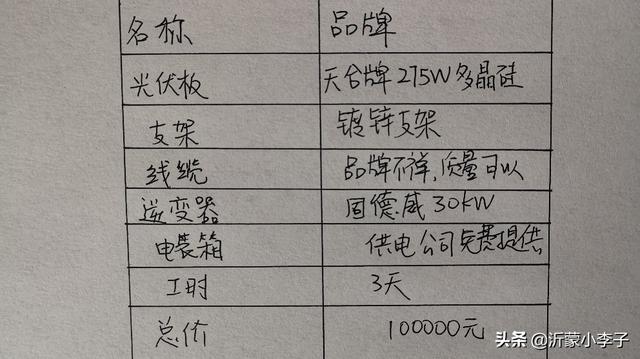 名称 品牌
光伏板 天合牌275W多晶硅
支架 镀锌支架
线缆 品牌不详,质量可以
逆变器 固德威30KW
电装箱 供电公司免费提供
工时 3天
总价 100000元
头条@沂蒙小李子